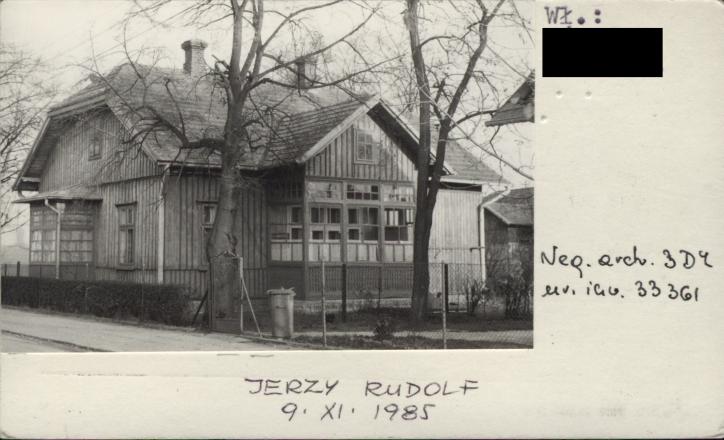 Wł.:
Neg. arch. 3D4
nr. inw. 33361
JERZY RUDOLF
9. XI. 1985